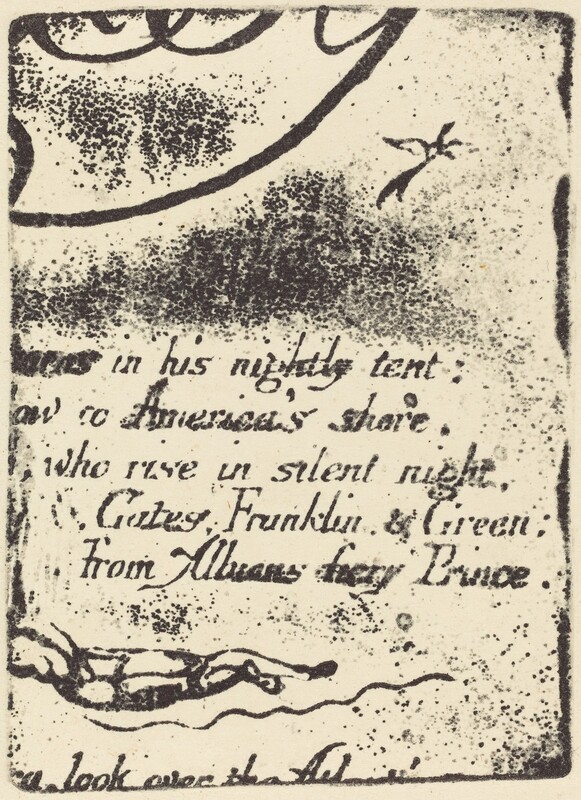 in his nightly tent:
ow to America's shore.
, who rise in silent night,
Gates, Franklin & Green;
from Albions fiery Prince.
look over the